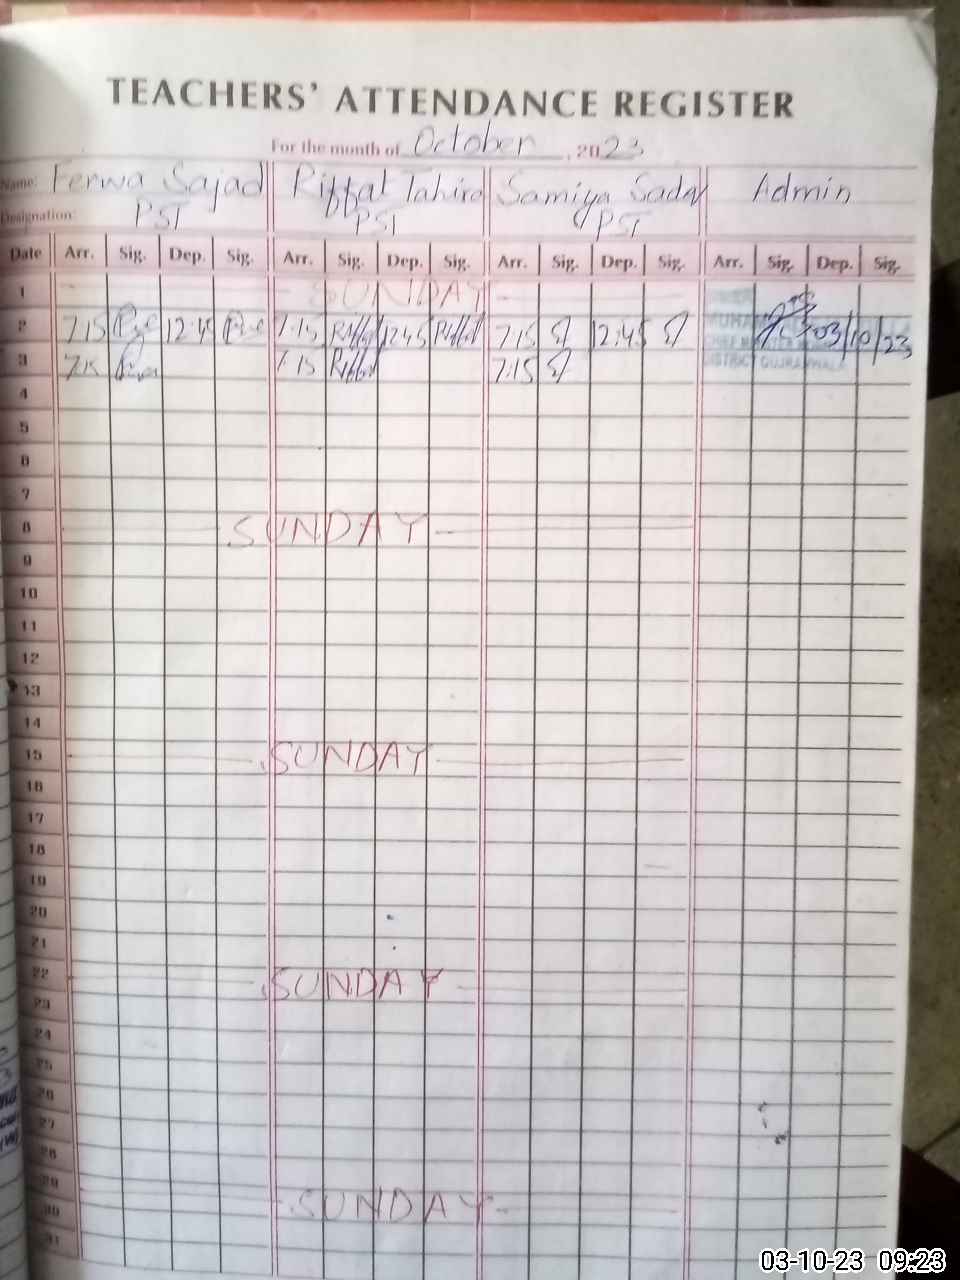 TEACHERS' ATTENDANCE REGISTER
For the month of October, 2023
Name: Ferwa Sajad Riffat Tahira Samiya Sadaf Admin
Designation: PST PST PST
Date Arr. Sig. Dep. Sig. Arr. Sig. Dep. Sig. Arr. Sig. Dep. Sig. Arr. Sig. Dep. Sig.
1 SUNDAY
2 7.15 12:45 7.15 Riffat 12.45 Riffat 7.15 12:45 03/10/23
3 7.15 7.15 Riffat 7.15 DISTRICT GUJRANWALA
4
5
6
7
8 SUNDAY
9
10
11
12
13
14
15 SUNDAY
16
17
18
19
20
21
22 SUNDAY
23
24
25
26
27
28
29 SUNDAY
30
31
03-10-23 09:23